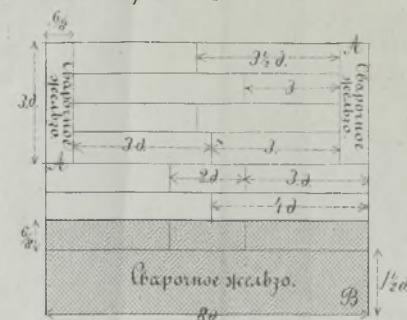 6/8
3½ д.
А
3 д.
Сварочное
желѣзо.
3
Сварочное
желѣзо.
3 д
3.
А
2 д
3. д
4 д
6/8
Сварочное желѣзо.
1½ д
В
8 д